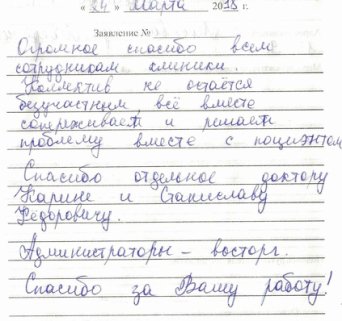 « 24 » Марта 2018 г.
Заявление №
Огромное спасибо всем
сотрудникам клиники.
Коллектив не остаётся
безучастным, всё вместе
сопереживает и решает
проблему вместе с поциэнтом
Спасибо отдельное доктору
Карине и Станиславу
Фёдоровичу.
Администраторы – восторг.
Спасибо за Вашу работу!